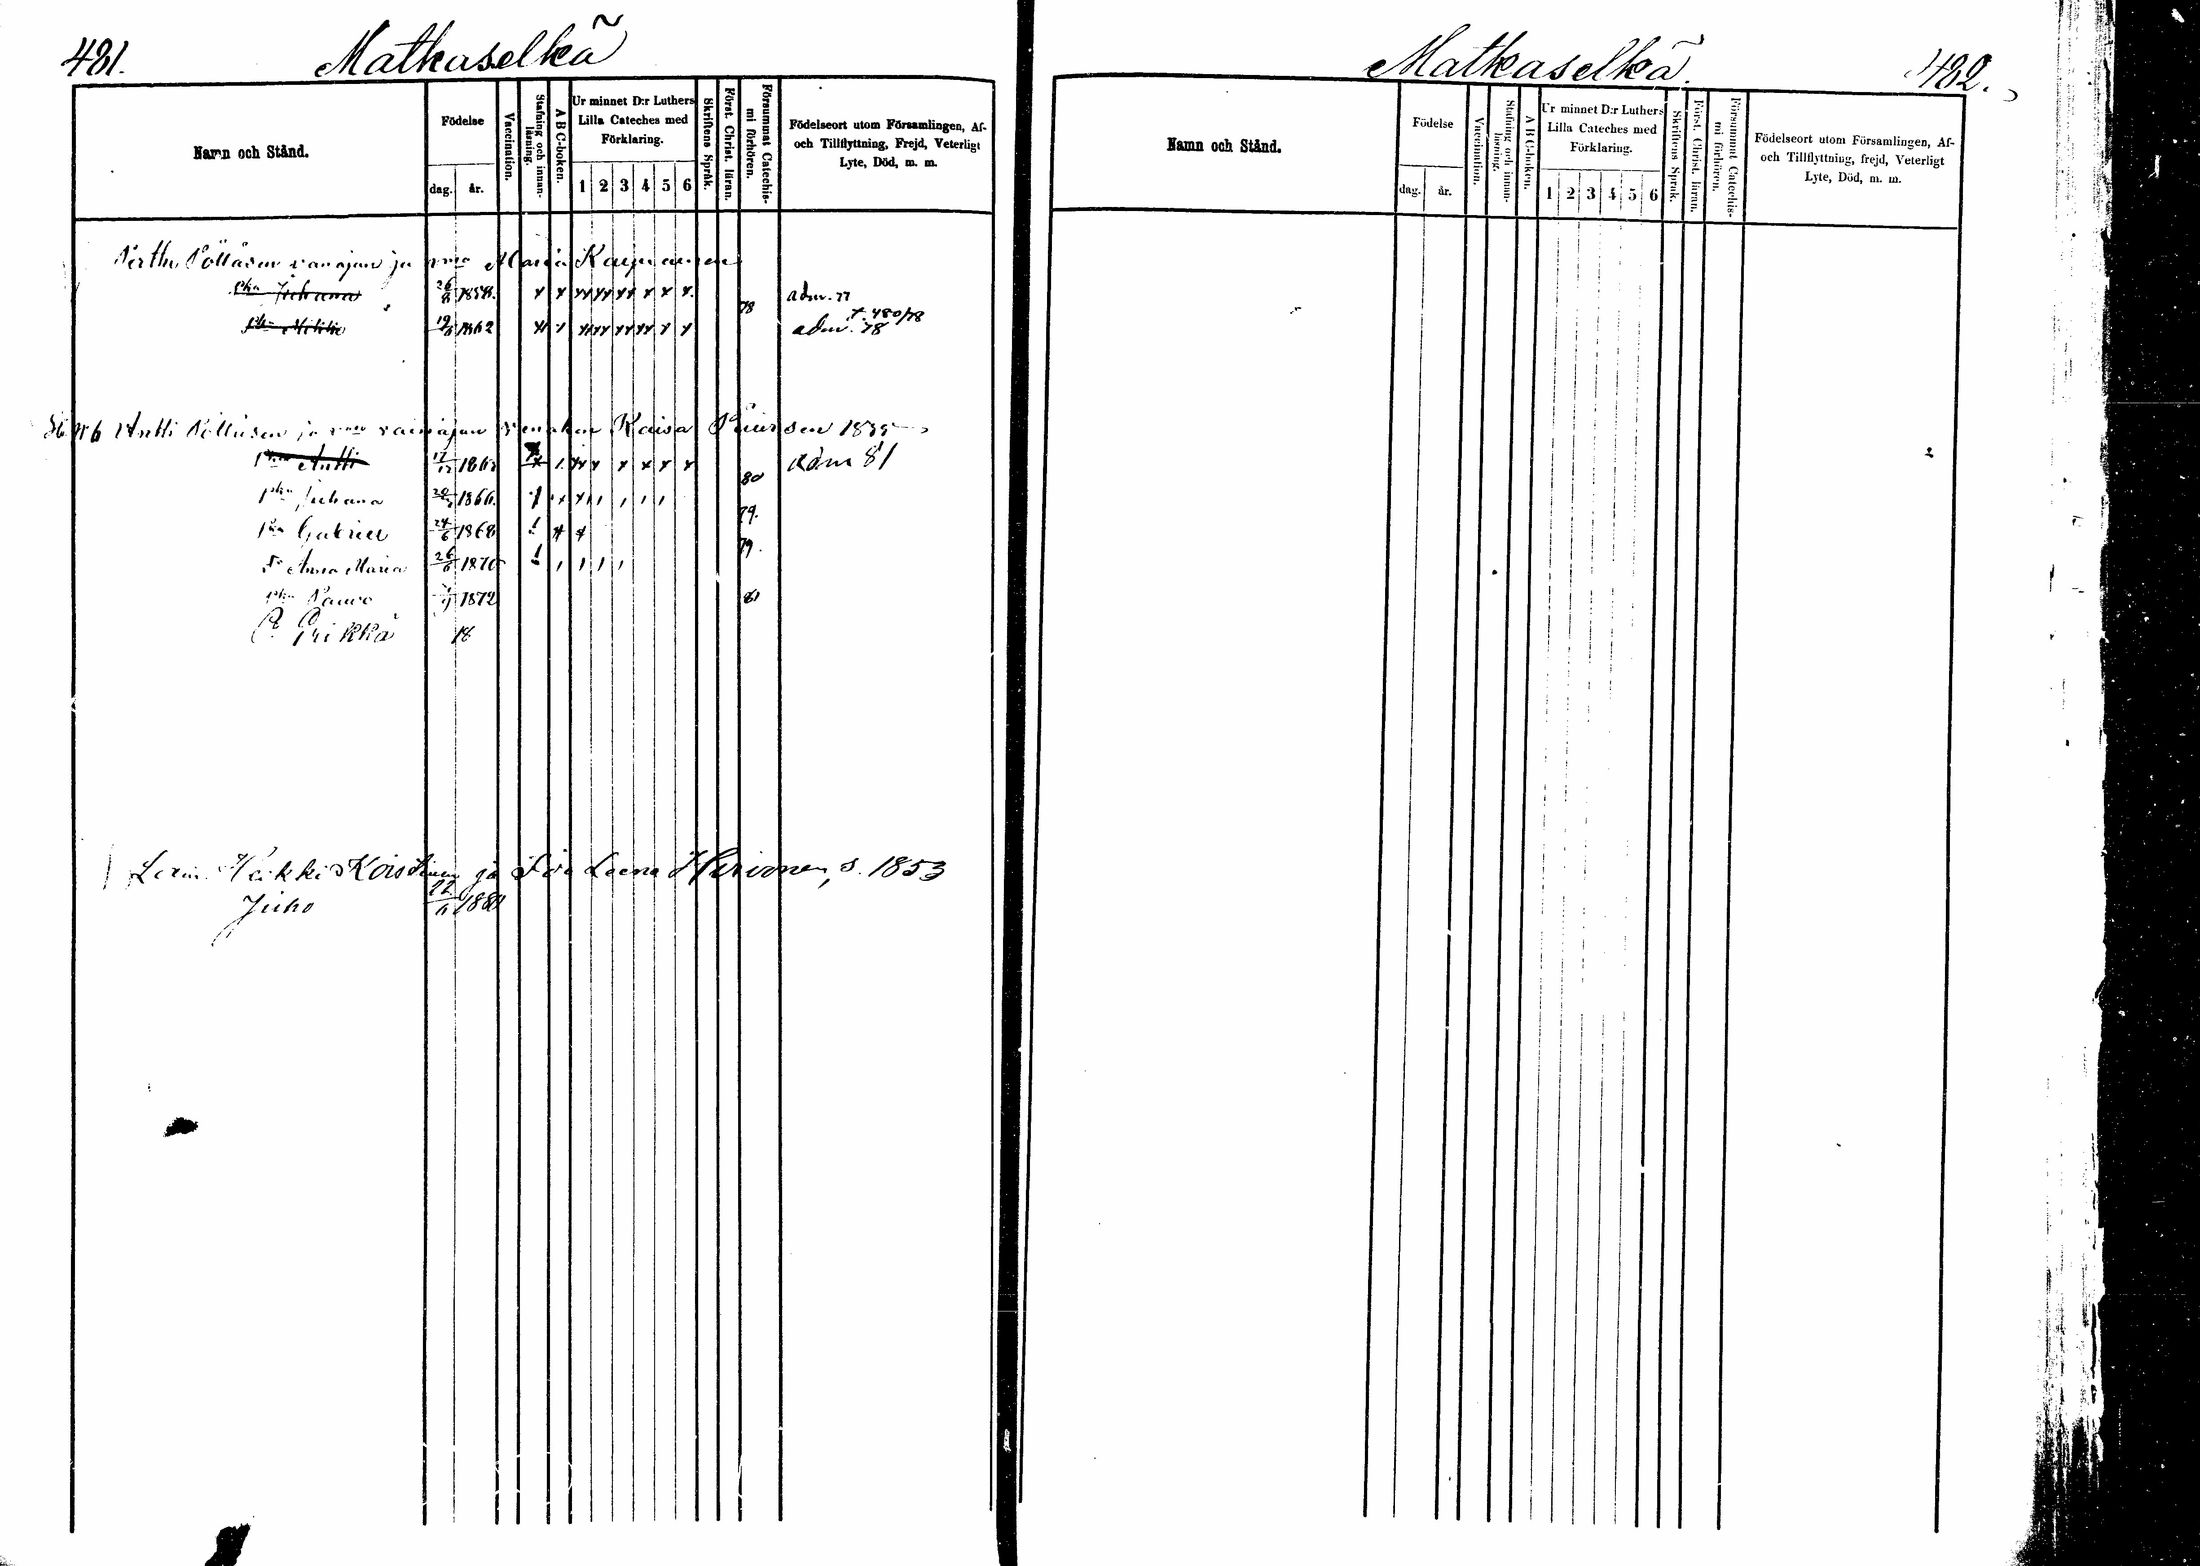 481. Matkaselkä
Namn och Stånd.
Födelse
dag. år.
Vaccination.
Stafning och innan-läsning.
A B C-boken.
Ur minnet D:r Luthers
Lilla Cateches med
Förklaring.
1 2 3 4 5 6
Skriftens Språk.
Först. Christ. läran.
Försummat Catechis-mi förhören.
Födelseort utom Församlingen, Af-
och Tillflyttning, Frejd, Veterligt
Lyte, Död, m. m.
Pölläsen ja Maria
Juhana 26/8 1858. adm. 77
78 480/78
1862 adm. 78
Antti Pölläsen ja Kaisa
Antti adm 81
80
Juhana 1866.
79.
Gabriel 24/6 1868
79.
Anna Maria 26/6
Paavo 1872 81
P. Prikka 18
Heikki Koistinen ja Leena Hirvonen, s. 1853
Juho
Matkaselkä. 482.
Namn och Stånd.
Födelse
dag. år.
Vaccination.
Stafning och innan-läsning.
A B C-boken.
Ur minnet D:r Luthers
Lilla Cateches med
Förklaring.
1 2 3 4 5 6
Skriftens Språk.
Först. Christ. läran.
Försummat Catechis-mi förhören.
Födelseort utom Församlingen, Af-
och Tillflyttning, frejd, Veterligt
Lyte, Död, m. m.